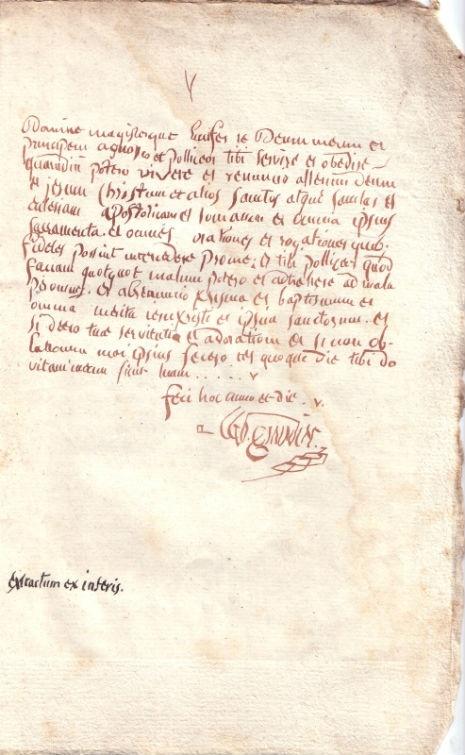 V
Domine magisterque Lucifer te Deum meum et
principem agnosco et polliceor tibi servire et obedire
quamdiu potero vivere et renuncio alterum Deum
et jesum Christum et alios sanctos atque sanctas et
ecclesiam apostolicam et romanam et omnia ipsius
sacramenta et omnes orationes et rogationes quib.
fideles possint intercedere pro me; et tibi polliceor quod
faciam quotquot malum potero et adtrahere ad mala
per omnes. et abrenuncio et baptismum et
omnia merita ieu Xristi et ipsius sanctorum. et
si deero tuae servitutia et adorationi et si non ob-
lationem moi ipsius fecero ter quoque die tibi do
vitam meam sicut tuam . . . . . v
feci hoc anno et die . v.
extractum ex inferis.